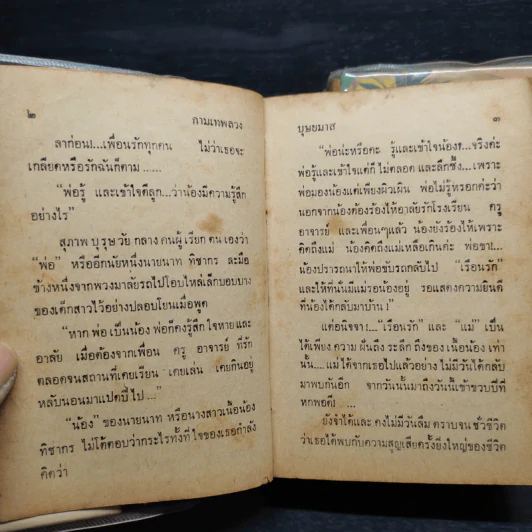 ๒
กามเทพลวง
ลาก่อน!...เพื่อนรักทุกคน ไม่ว่าเธอจะ
เกลียดหรือรักฉันก็ตาม ......
“พ่อรู้ และเข้าใจดีลูก...ว่าน้องมีความรู้สึก
อย่างไร”
สุภาพ บุรุษ วัย กลาง คนผู้ เรียก ตน เองว่า
“พ่อ” หรืออีกนัยหนึ่งนายนาท ทิชากร ละมือ
ข้างหนึ่งจากพวงมาลัยรถไปโอบไหล่เล็กบอบบาง
ของเด็กสาวไว้อย่างปลอบโยนเมื่อพูด
“หาก พ่อ เป็นน้อง พ่อก็คงรู้สึก ใจหาย และ
อาลัย เมื่อต้องจากเพื่อน ครู อาจารย์ ที่รัก
ตลอดจนสถานที่เคยเรียน เคยเล่น เคยกินอยู่
หลับนอนมาแปดปีนี้ไป ...”
“น้อง” ของนายนาท หรือนางสาวเนื้อน้อง
ทิชากร ไม่โต้ตอบว่ากระไรทั้งที่ใจของเธอกำลัง
คิดว่า
บุษยมาส
๓
“พ่อน่ะหรือคะ รู้และเข้าใจน้อง?...จริงค่ะ
พ่อรู้และเข้าใจแต่ก็ ไม่ตลอด และลึกซึ้ง... เพราะ
พ่อมองน้องแต่เพียงผิวเผิน พ่อไม่รู้หรอกค่ะว่า
นอกจากน้องต้องร้องไห้อาลัยรักโรงเรียน ครู
อาจารย์ และเพื่อนๆแล้ว น้องยังร้องไห้เพราะ
คิดถึงแม่ น้องคิดถึงแม่เหลือเกินค่ะ พ่อขา!...
น้องปรารถนาให้พ่อขับรถกลับไป “เรือนรัก”
และให้ที่นั่นมีแม่รอน้องอยู่ รอแสดงความยินดี
ที่น้องได้กลับมาบ้าน !”
แต่อนิจจา !... “เรือนรัก” และ “แม่” เป็น
ได้เพียง ความ ฝันถึง ระลึก ถึงของ เนื้อน้อง เท่า
นั้น... แม่ ได้จากเธอไปแล้วอย่าง ไม่มีวันได้กลับ
มาพบกันอีก จากวันนั้นมาถึงวันนี้เข้าขวบปีที่
หกพอดี ....
ยังจำได้และ คงไม่มีวันลืม ตราบจน ชั่วชีวิต
ว่าเธอได้พบกับความสูญเสียครั้งยิ่งใหญ่ของชีวิต